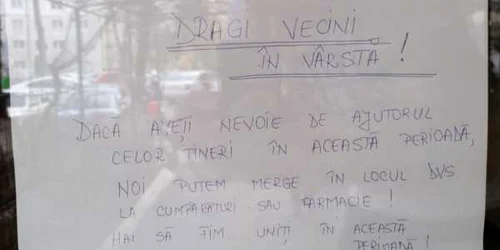 DRAGI VECINI
ÎN VÂRSTĂ !
DACĂ AVEȚI NEVOIE DE AJUTORUL
CELOR TINERI ÎN ACEASTĂ PERIOADĂ,
NOI PUTEM MERGE ÎN LOCUL DVS
LA CUMPĂRĂTURI SAU FARMACIE !
HAI SĂ FIM UNIȚI ÎN ACEASTĂ
PERIOADĂ !